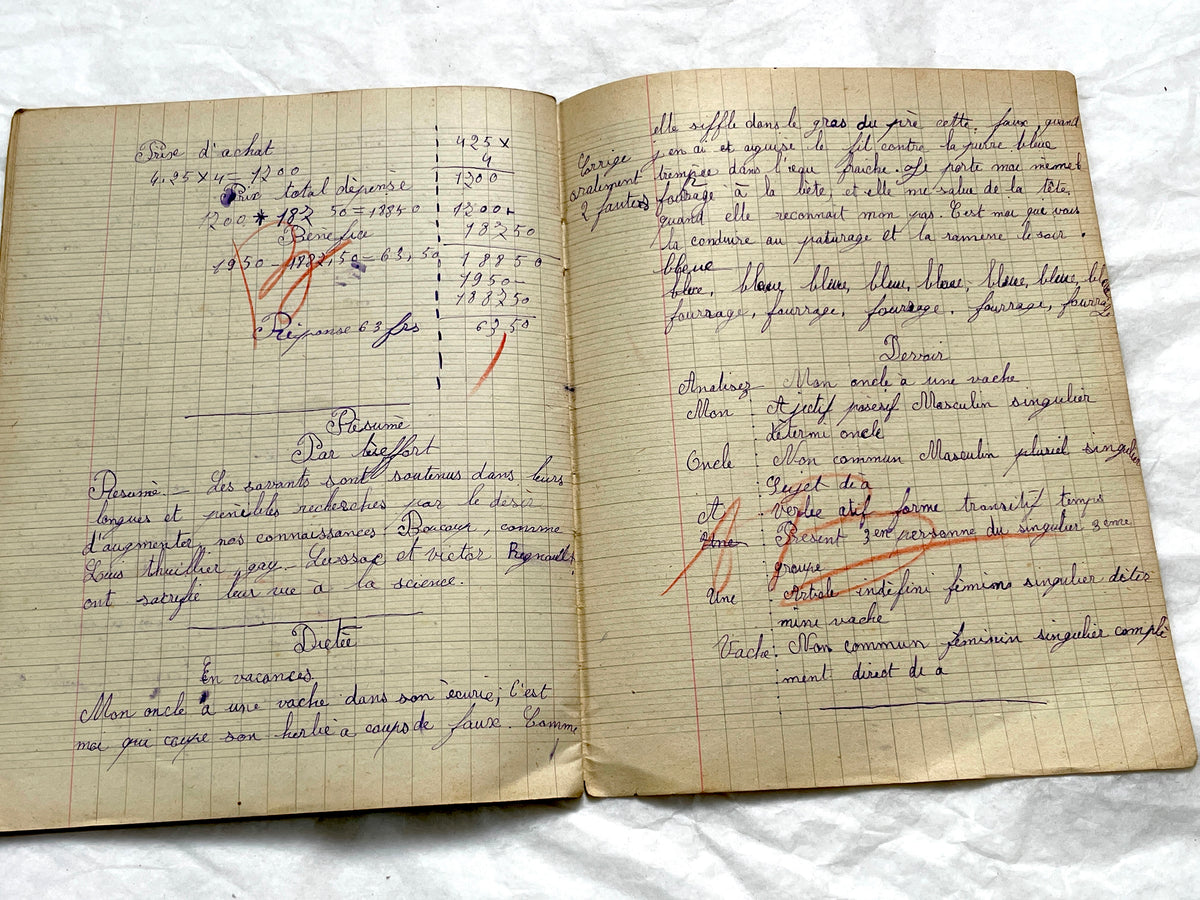 Prix d'achat
4.25 x 4 = 1200
Prix total dépense
1200 + 182 50 = 18850
Bénéfice
1950 - 1882,50 = 63,50
Réponse 63 frs
425 x
4
1200
1200 +
18250
18850
1950 -
188250
6350
Résumé
Par
Résumé - Les savants sont soutenus dans leurs
longues et penibles recherches par le desir
d'augmenter nos connaissances. Boucoup, comme
Louis thuillier, gay-Lussac et victor Regnault,
ont sacrifié leur vie a la science.
Dictée
En vacances
Mon oncle a une vache dans son écurie; C'est
moi qui coupe son herbe à coups de faux. Comme
elle siffle dans le gras du prè cette faux, quand
j'en ai et aguise le fil contre la pierre bleue
trempée dans l'eau fraiche. Je porte moi meme
fourage à la bête, et elle me salue de la tête,
quand elle reconnait mon pas. C'est moi que vous
la conduire au paturage et la ramene le soir.
Corrige
oralement
2 fautes
bleue
bleue, bleue, bleue, bleue, bleue, bleue, bleue,
fourrage, fourrage, fourrage, fourrage,
Devoir
Analisez Mon oncle à une vache
Mon : Ajectif posesif Masculin singulier
détermi oncle
Oncle Nom commun Masculin pluriel singulier
Sujet de a
A : Verbe atif forme transitif temps
Une Présent 3em personne du singulier 3eme
groupe
Une : Article indéfini féminin singulier déter
mini vache
Vache : Nom commun féminin singulier complè
ment direct de a